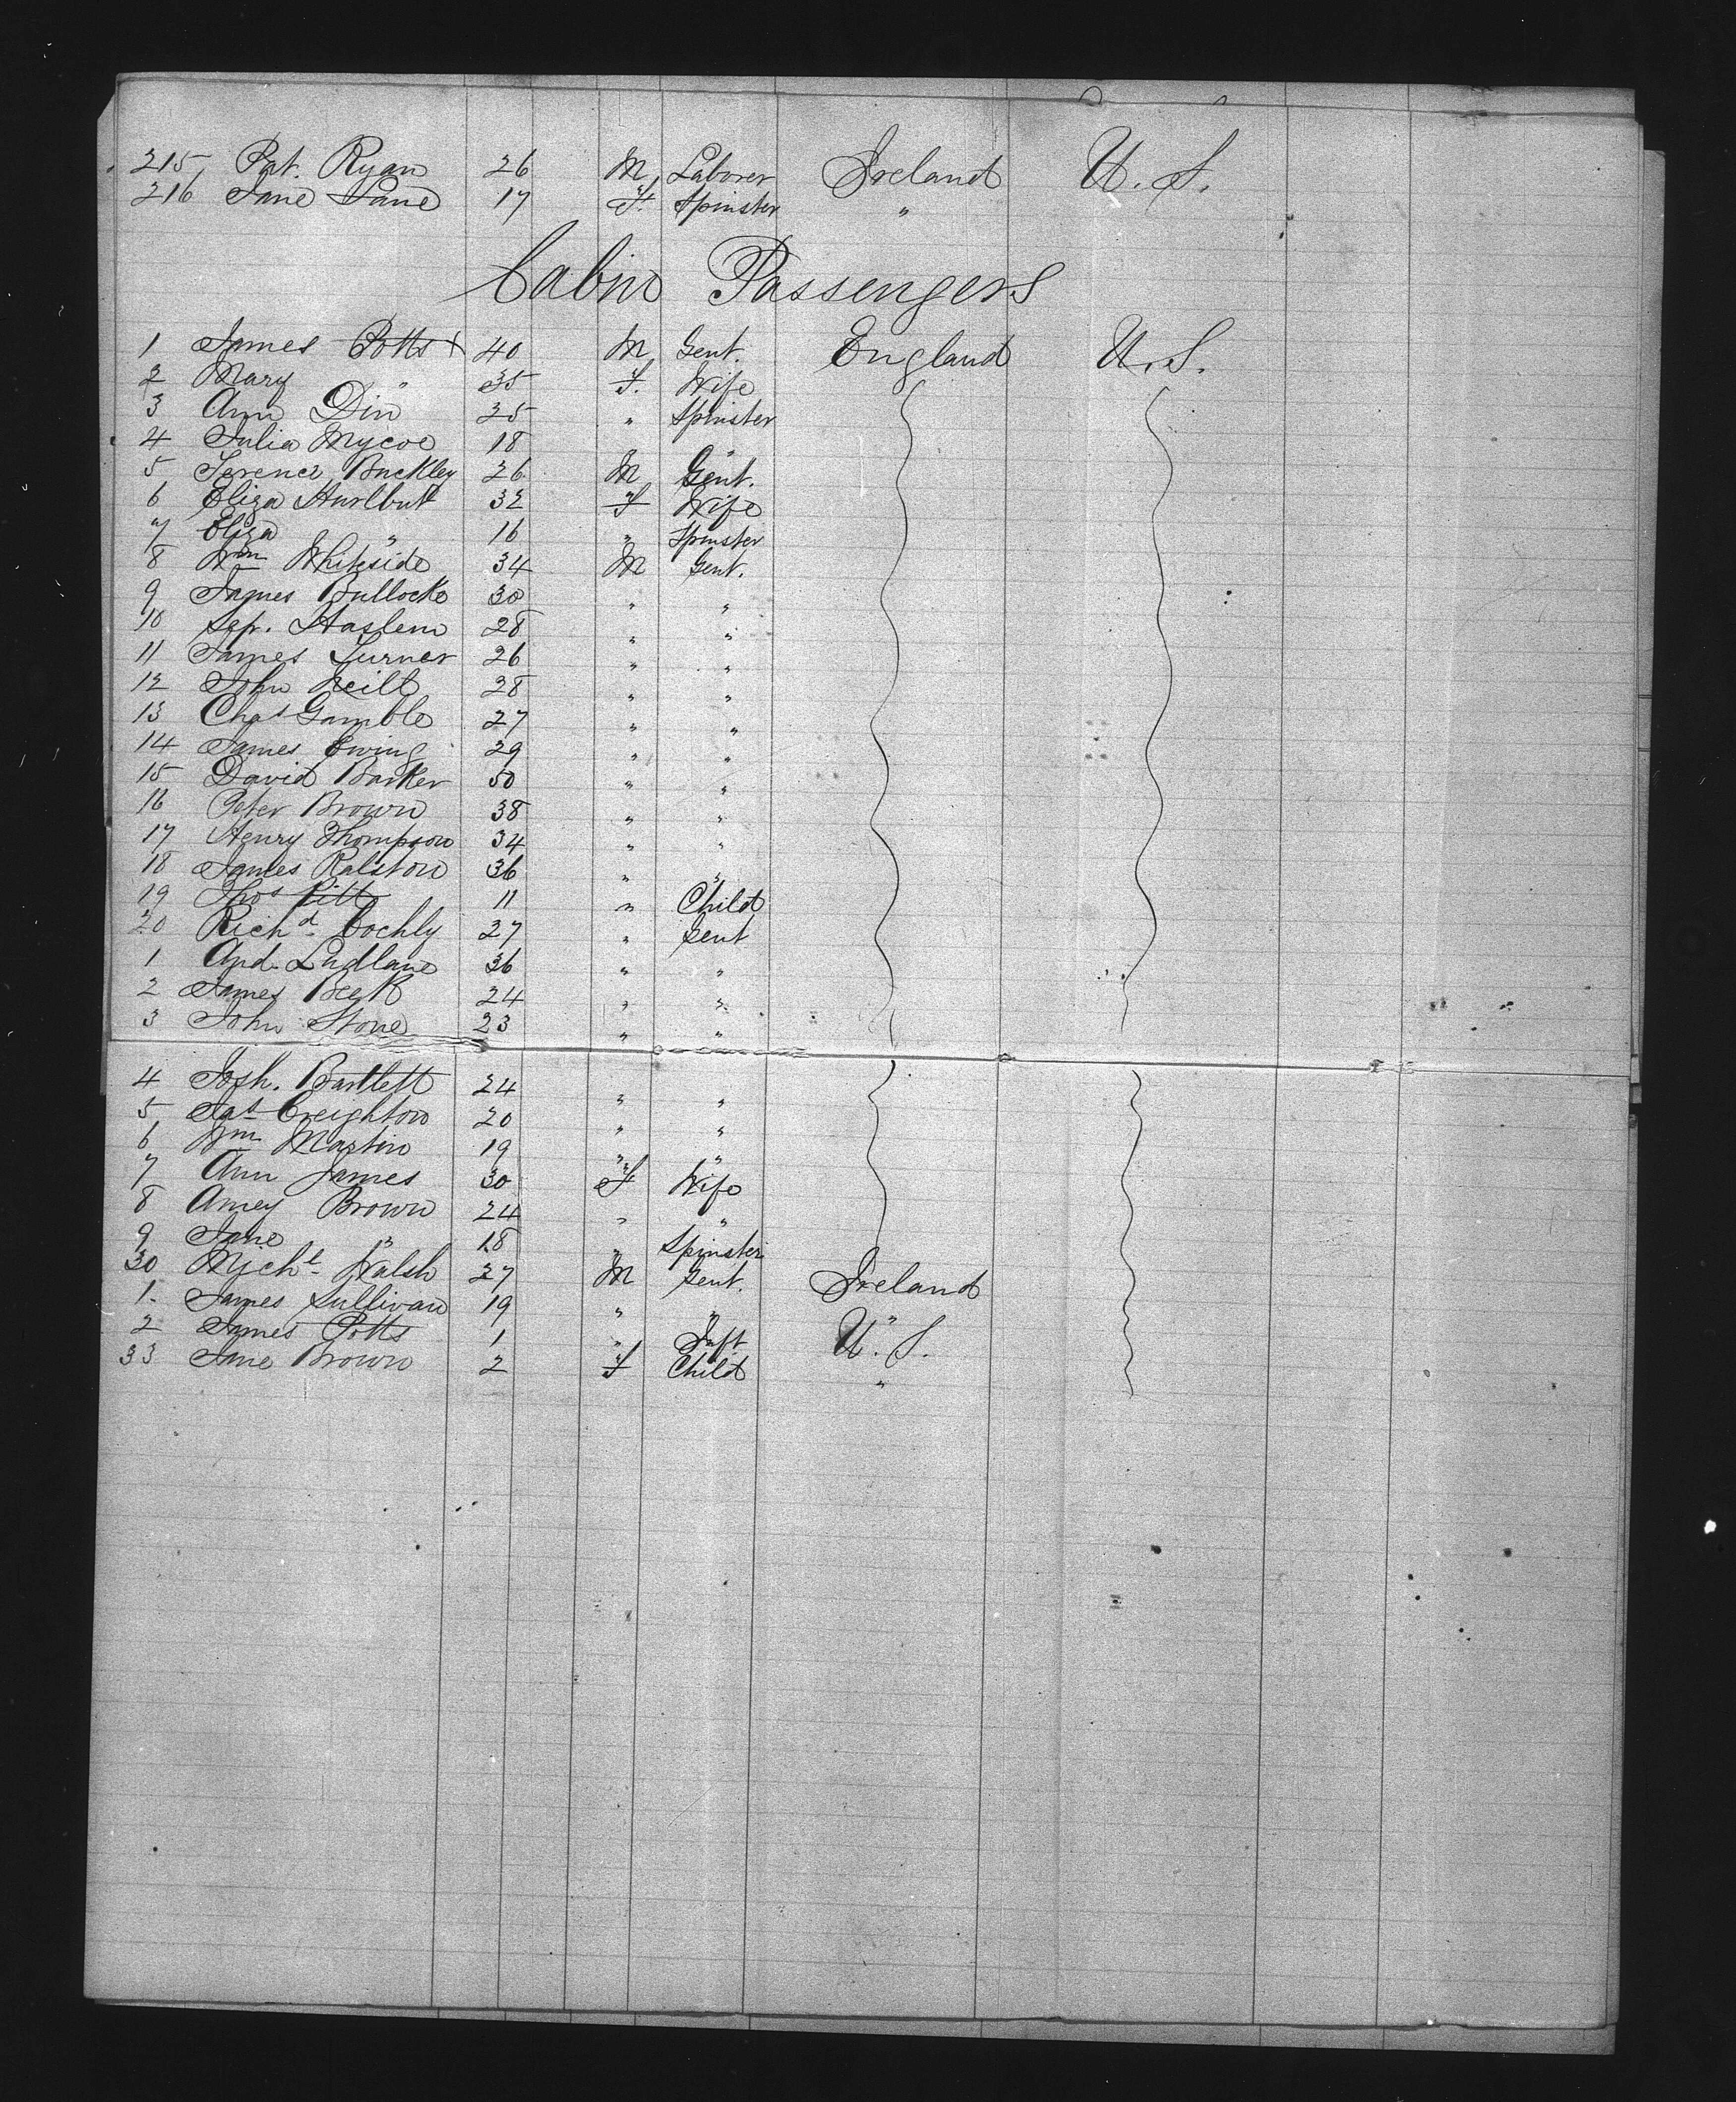 215 Pat. Ryan 26 M Laborer Ireland U. S.
216 Jane Lane 17 F. Spinster "
Cabin Passengers
1 James Potts 40 M Gent. England U. S.
2 Mary " 35 F. Wife
3 Ann Din 25 " Spinster
4 Julia Mycoe 18 " "
5 Terence Buckley 26 M Gent.
6 Eliza Hurlbut 32 F Wife
7 Eliza " 16 " Spinster
8 Wm Whiteside 34 M Gent.
9 James Bullocke 30 " "
10 Sep. Haslem 28 " "
11 James Turner 26 " "
12 John Neill 28 " "
13 Chas Gamble 27 " "
14 James Ewing 29 " "
15 David Barker 50 " "
16 Peter Brown 38 " "
17 Henry Thompson 34 " "
18 James Ralston 36 " "
19 Thos Pitt 11 " Child
20 Richd 27 " Gent
1 And. 36 " "
2 James Beek 24 " "
3 John Stone 23 " "
4 Josh. Bartlett 24 " "
5 Jas Creighton 20 " "
6 Wm Martin 19 " "
7 Ann James 30 F Wife
8 Amey Brown 24 " "
9 Jane " 18 " Spinster
30 Michl Walsh 27 M Gent. Ireland
1. James Sullivan 19 " " "
2 James Potts 1 " Inft. U. S.
33 Jane Brown 2 F Child "